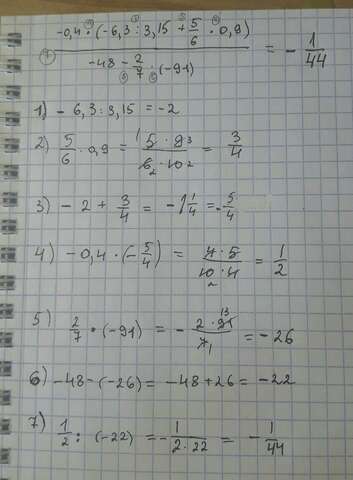 -0,4 · (-6,3 : 3,15 + 5/6 · 0,9)
-48 - 2/7 · (-91)
= - 1/44
1) - 6,3 : 3,15 = -2
2) 5/6 · 0,9 = 5 · 9 / 6 · 10 = 3/4
3) - 2 + 3/4 = -1 1/4 = - 5/4
4) -0,4 · (- 5/4) = 4 · 5 / 10 · 4 = 1/2
5) 2/7 · (-91) = - 2 · 91 / 7 = - 26
6) -48 - (-26) = -48 + 26 = -22
7) 1/2 : (-22) = - 1 / 2 · 22 = - 1/44